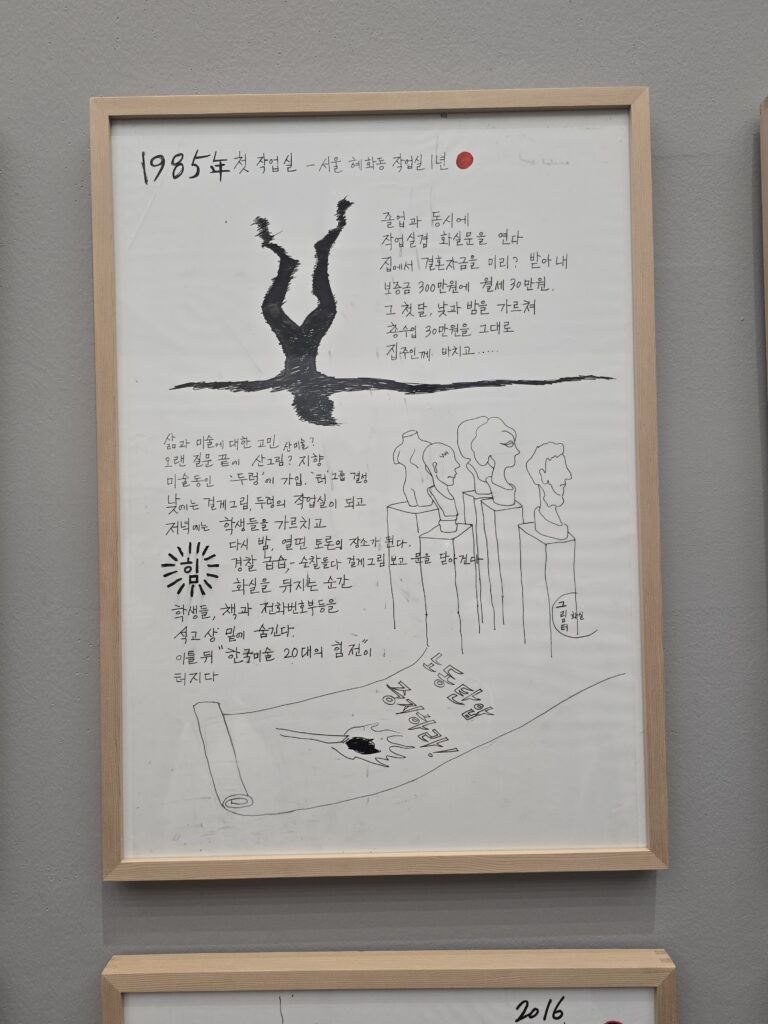 1985年 첫 작업실 - 서울 혜화동 작업실 1년
졸업과 동시에
작업실겸 화실문을 연다
집에서 결혼자금을 미리? 받아내
보증금 300만원에 월세 30만원.
그 첫달, 낮과 밤을 가르쳐
총수입 30만원을 그대로
집주인께 바치고.....
삶과 미술에 대한 고민 산미술?
오랜 질문 끝에 산그림? 지향
미술동인 '두렁'에 가입. '터'그룹 결성
낮에는 걸게그림, 두렁의 작업실이 되고
저녁에는 학생들을 가르치고
다시 밤, 열띤 토론의 장소가 된다.
힘
경찰 급습,- 순찰돌다 걸게그림 보고 문을 닫아건다
화실을 뒤지는 순간
학생들, 책과 전화번호부등을
석고상 밑에 숨긴다.
이틀 뒤 "한국미술 20대의 힘전"이
터지다
그림터 화실
노동탄압
중지하라!
2016